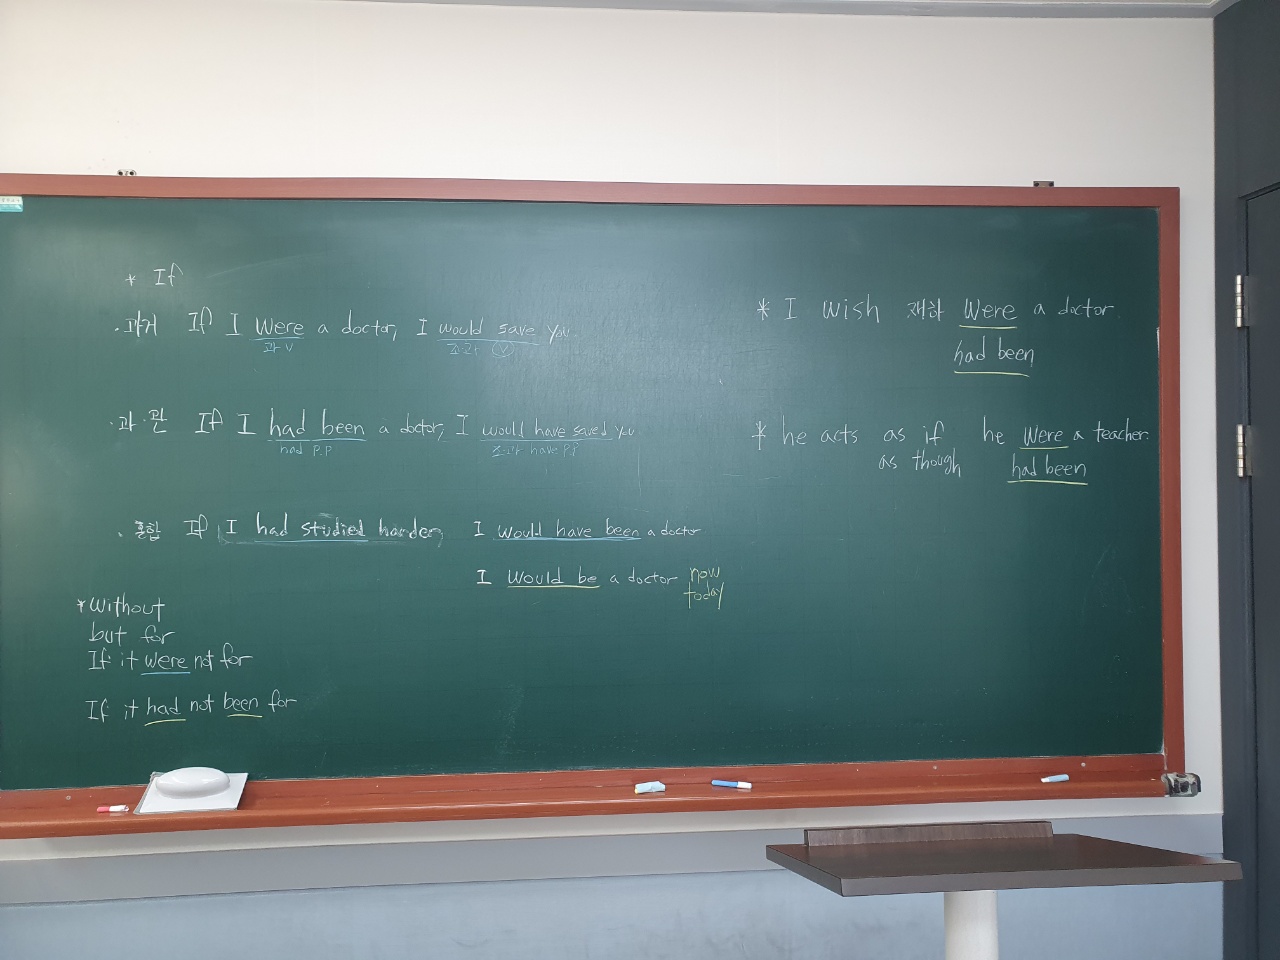 * If
· 과거 If I were a doctor, I would save you.
과 V 조과 V
· 과·완 If I had been a doctor, I would have saved you.
had p.p 조과 have p.p
· 혼합 If I had studied harder, I would have been a doctor
I would be a doctor now
today
* without
but for
If it were not for
If it had not been for
* I wish 재하 were a doctor.
had been
* he acts as if he were a teacher.
as though had been